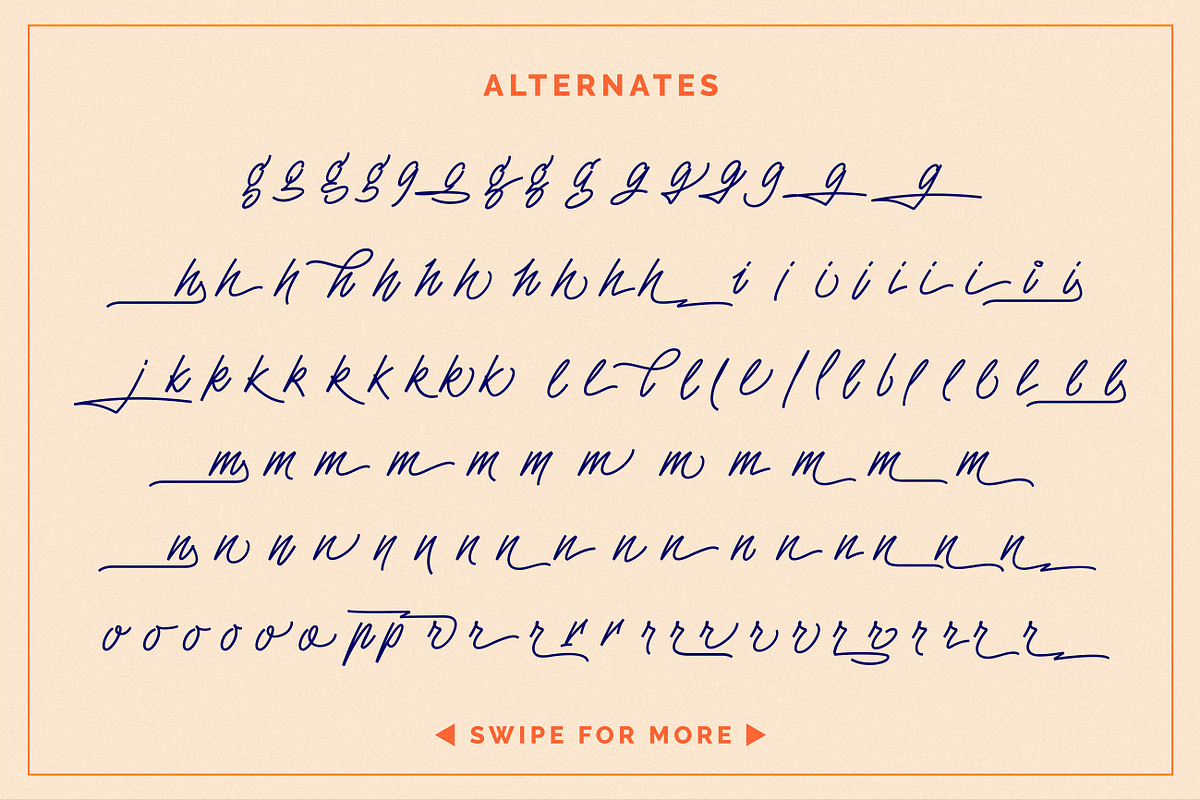 ALTERNATES
g g g g g g g g g g g g g g g
h h h h h h h h h h h i i i i i i i i i
j k k k k k k k k k l l l l l l l l l l l l l l l l l
m m m m m m m m m m m m
n n n n n n n n n n n n n n n n n
o o o o o o p p r r r r r r r r r r r r r r r r
◀ SWIPE FOR MORE ▶